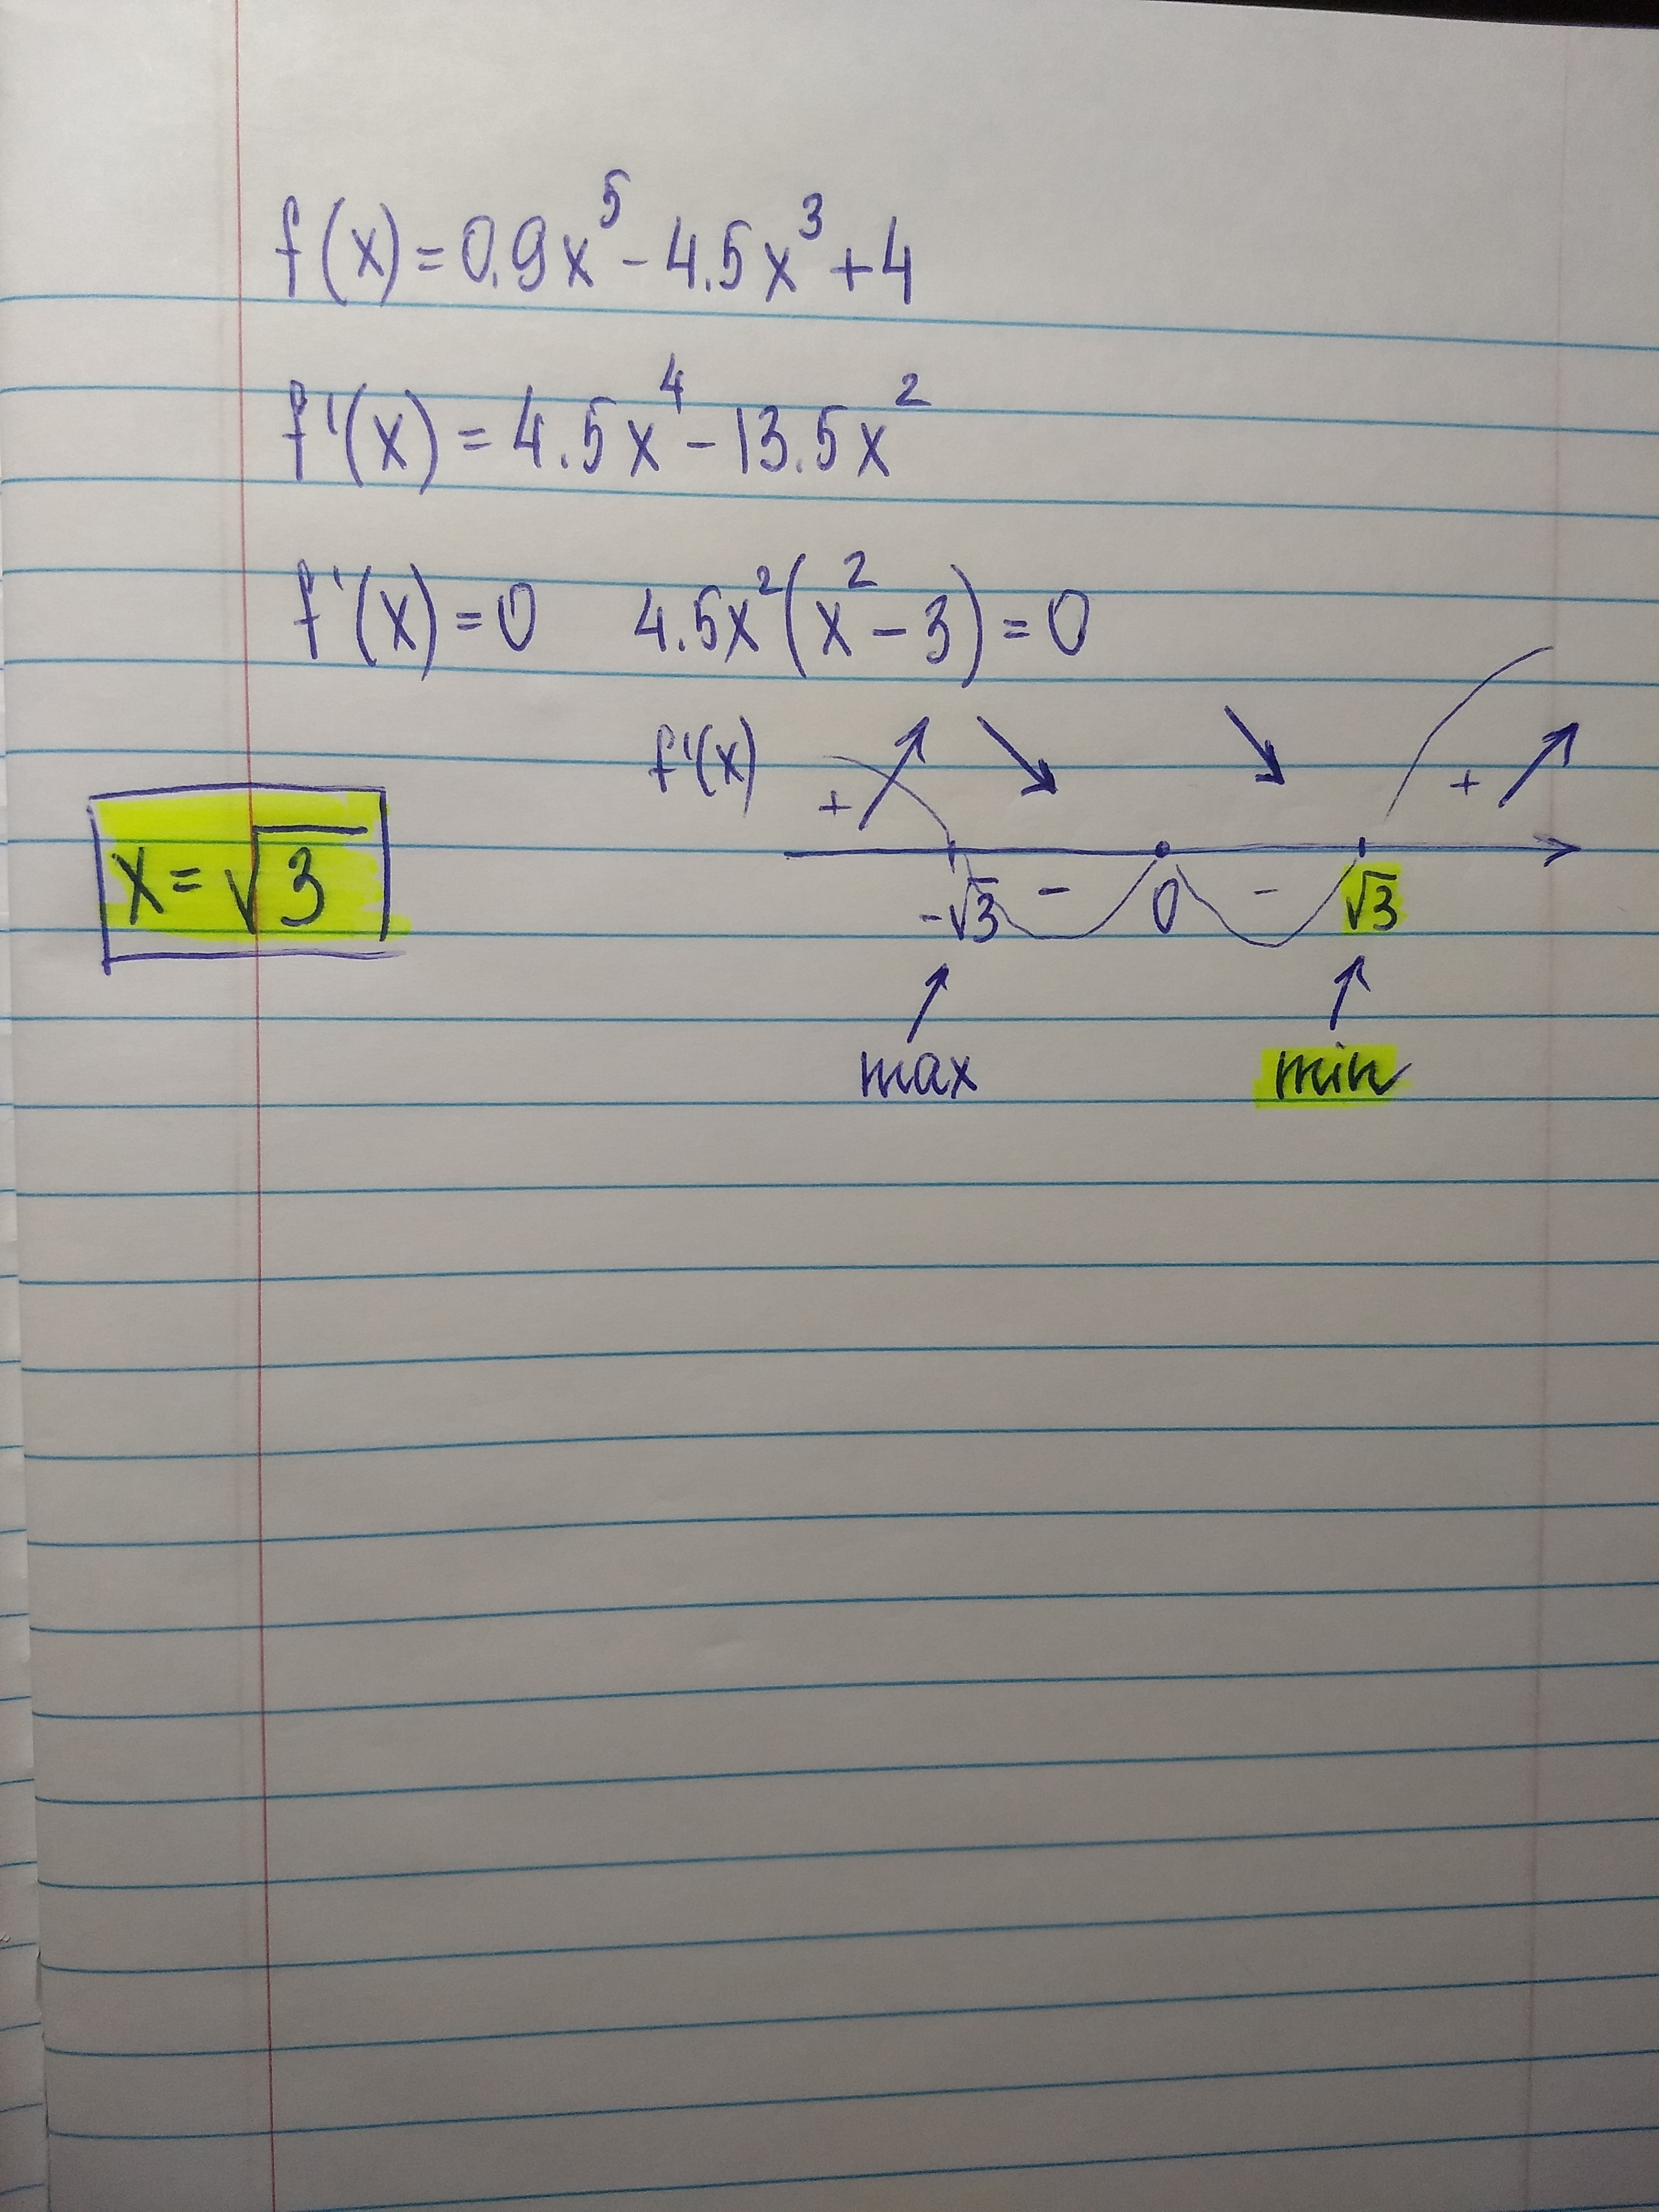 f(x)=0.9x⁵-4.5x³+4
f'(x)=4.5x⁴-13.5x²
f'(x)=0 4.5x²(x²-3)=0
f'(x) + +
x=√3
-√3 - 0 - √3
max min